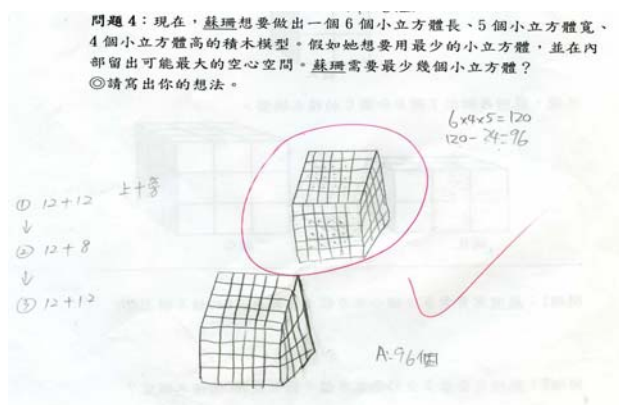 問題 4：現在，蘇珊想要做出一個 6 個小立方體長、5 個小立方體寬、
4 個小立方體高的積木模型。假如她想要用最少的小立方體，並在內
部留出可能最大的空心空間。蘇珊需要最少幾個小立方體？
◎請寫出你的想法。
6x4x5=120
120-24=96
① 12+12
↓
② 12+8
↓
③ 12+12
A:96個